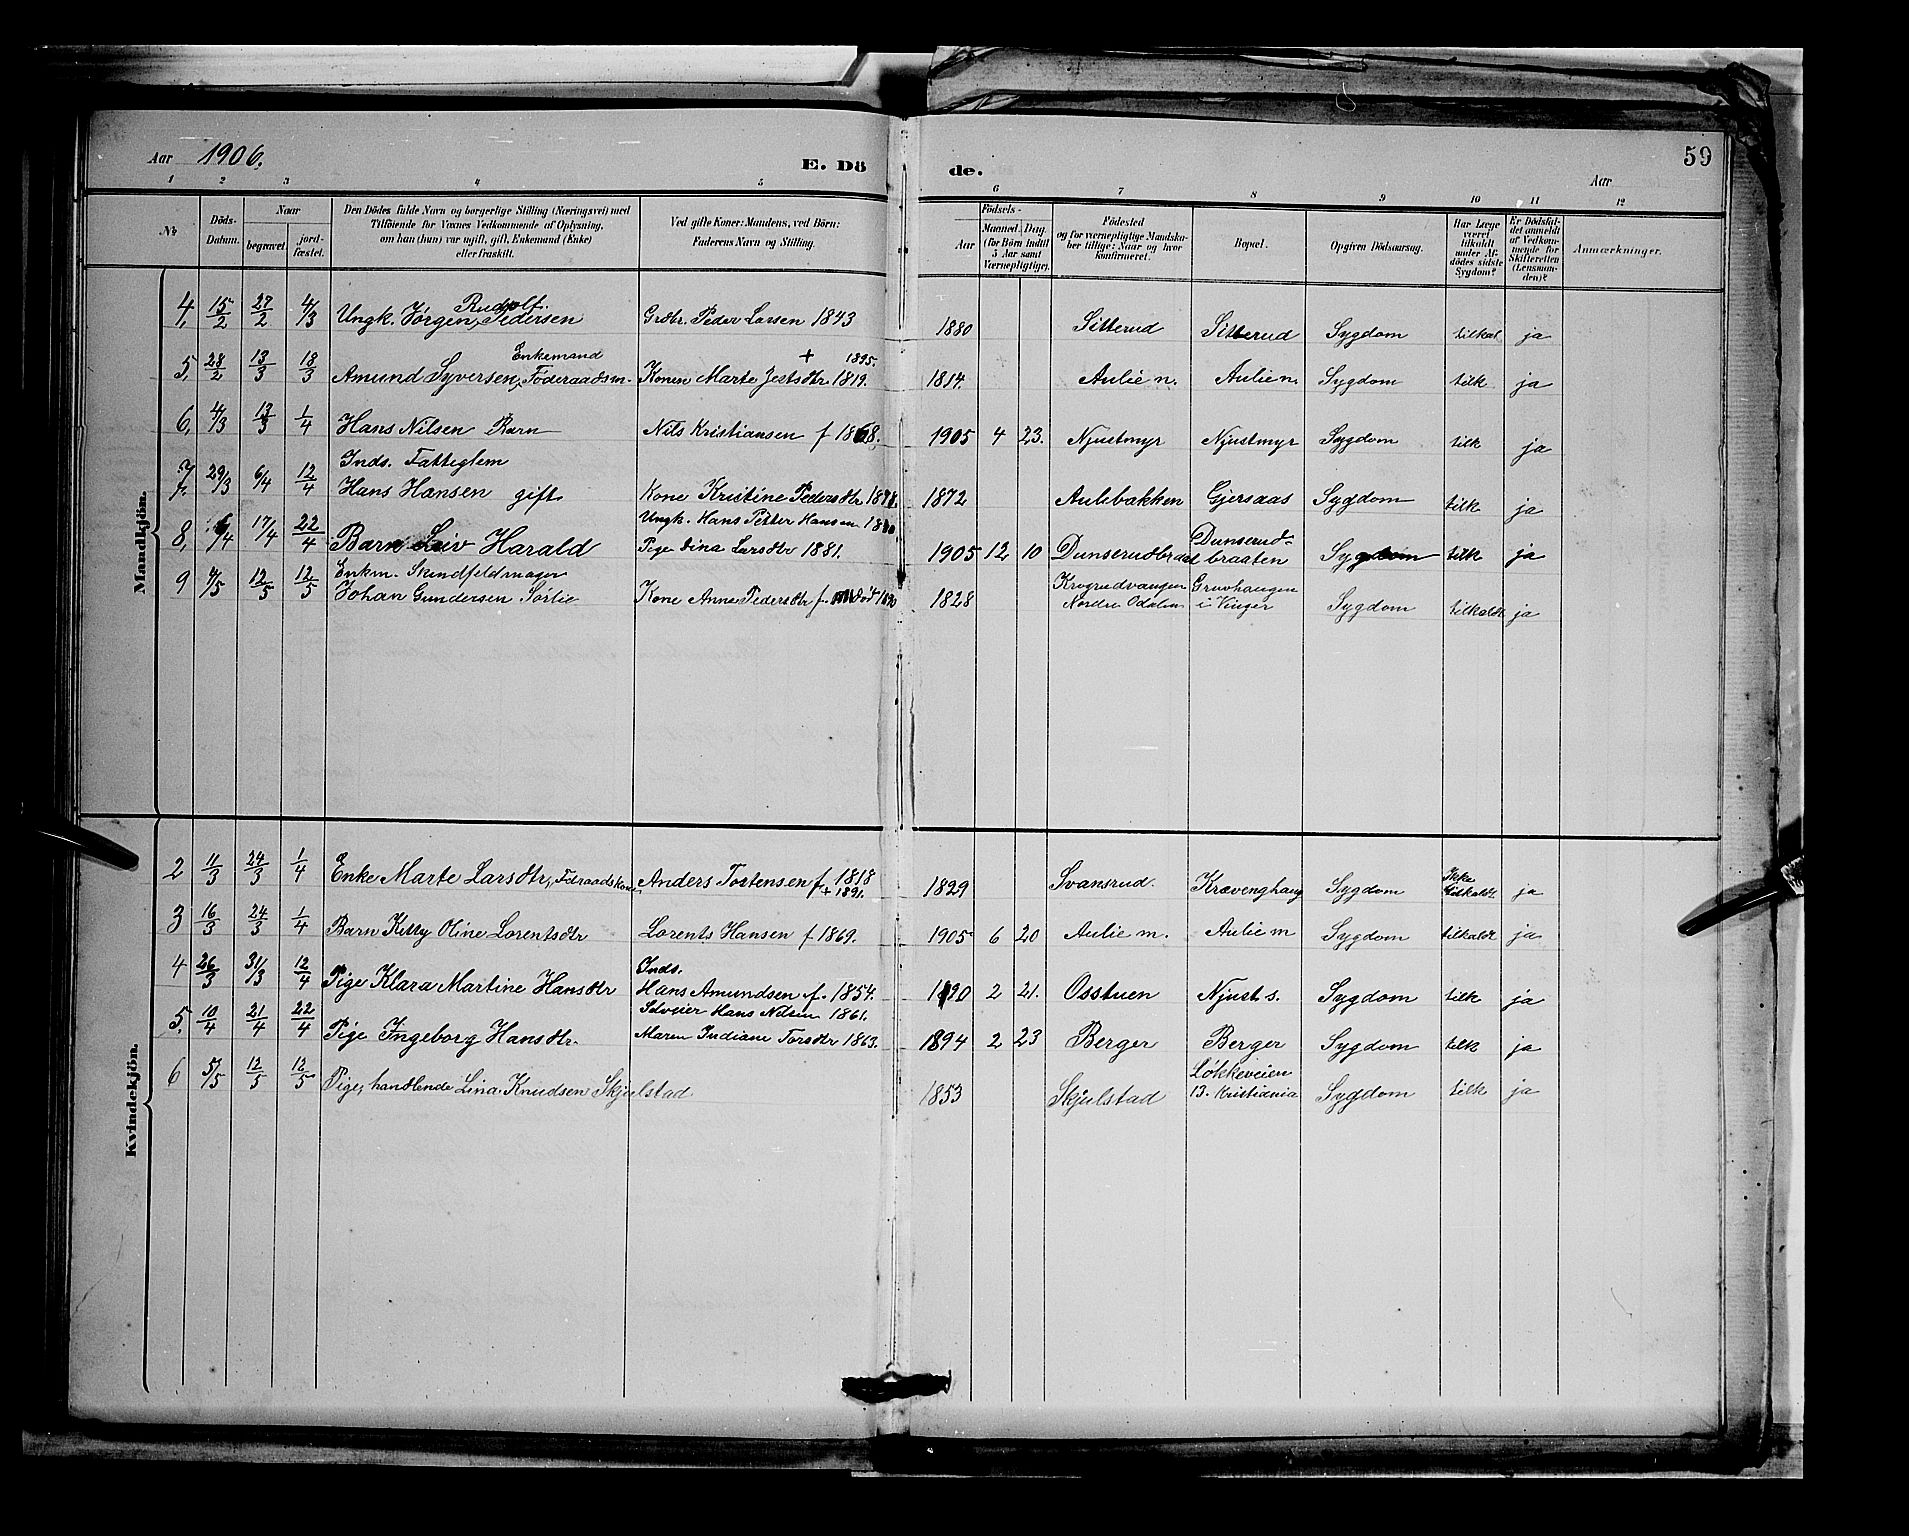 Aar 1906. E. Dö de. Aar 59
1 2 3 4 5 6 7 8 9 10 11 12
№
Döds-Datum.
Naar
begravet
jord-fæstet.
Den Dödes fulde Navn og borgerlige Stilling (Næringsvei) med
Tilföiende for Voxnes Vedkommende af Oplysning,
om han (hun) var ugift, gift, Enkemand (Enke)
eller fraskilt.
Ved gifte Koner: Mandens, ved Börn:
Faderens Navn og Stilling.
Födsels-
Aar
Maaned. Dag.
(for Börn indtil
5 Aar samt
Værnepligtige).
Födested
og for værnepligtige Mandska-
ber tillige: Naar og hvor
konfirmeret.
Bopæl.
Opgiven Dödsaarsag.
Har Læge
været
tilkaldt
under Af-
dödes sidste
Sygdom?
Er Dödsfal-
det anmeldt
af Vedkom-
mende for
Skifteretten
(Lensman-
den)?
Anmærkninger.
Mandkjön.
Rudolf.
4, 15/2 27/2 4/3 Ungk. Jörgen, Pedersen Grdbr. Peder Larsen 1843 1880 Sitterud Sitterud Sygdom tilkal ja
Enkemand + 1895.
5, 28/2 13/3 18/3 Amund Syversen, Föderaadsm. Konen Marte Jestsdtr 1819. 1814. Aulie n. Aulie n. Sygdom tilk ja
6, 4/3 13/3 1/4 Hans Nilsen Barn Nils Kristiansen f 1868. 1905 4 23. Njustmyr Njustmyr Sygdom tilk ja
Inds. Fattiglem
7. 29/3 6/4 12/4 Hans Hansen gift Kone Kristine Pedersdtr. 1872 Aulebakken Gjersaas Sygdom tilk ja
Ungk. Hans Petter Hansen Dunserud-
8, /4 17/4 22/4 Barn Leiv Harald Pige Dina Larsdtr 1881. 1905 12 10 Dunserudbraat braaten Sygdom tilk ja
Enkm. Skindfeldmager Krogrudvangen Gruvhaugen
9 4/5 12/5 12/5 Johan Gundersen Sörlie Kone Anne Pedersdtr f. död 1828 Nordre Odalen i Vinger Sygdom tilkaldt ja
Kvindekjön.
2 11/3 24/3 1/4 Enke Marte Larsdtr, Födraadskone Anders Tortensen f 1818 + 1891. 1829 Svansrud. Krævenghaug Sygdom Ikke tilkaldt. ja
3 16/3 24/3 1/4 Barn Kitty Oline Lorentsdtr Lorents Hansen f 1869. 1905 6 20 Aulie m. Aulie m Sygdom tilkaldt ja
Inds.
4 26/3 31/3 12/4 Pige Klara Martine Hansdtr Hans Amundsen f. 1854. 1890 2 21. Osstuen Njust s. Sygdom tilk ja
Selveier Hans Nilsen 1861.
5. 10/4 21/4 22/4 Pige Ingeborg Hansdtr. Maren Indiane Torsdtr 1863. 1894 2 23 Berger Berger Sygdom tilk ja
Lökkeveien
6 5/5 12/5 12/5 Pige, handlende Lina Knudsen Skjulstad 1853 Skjulstad 13. Kristiania Sygdom tilk ja